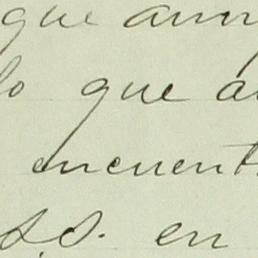 que aun
lo que a
encuent
S.S. en